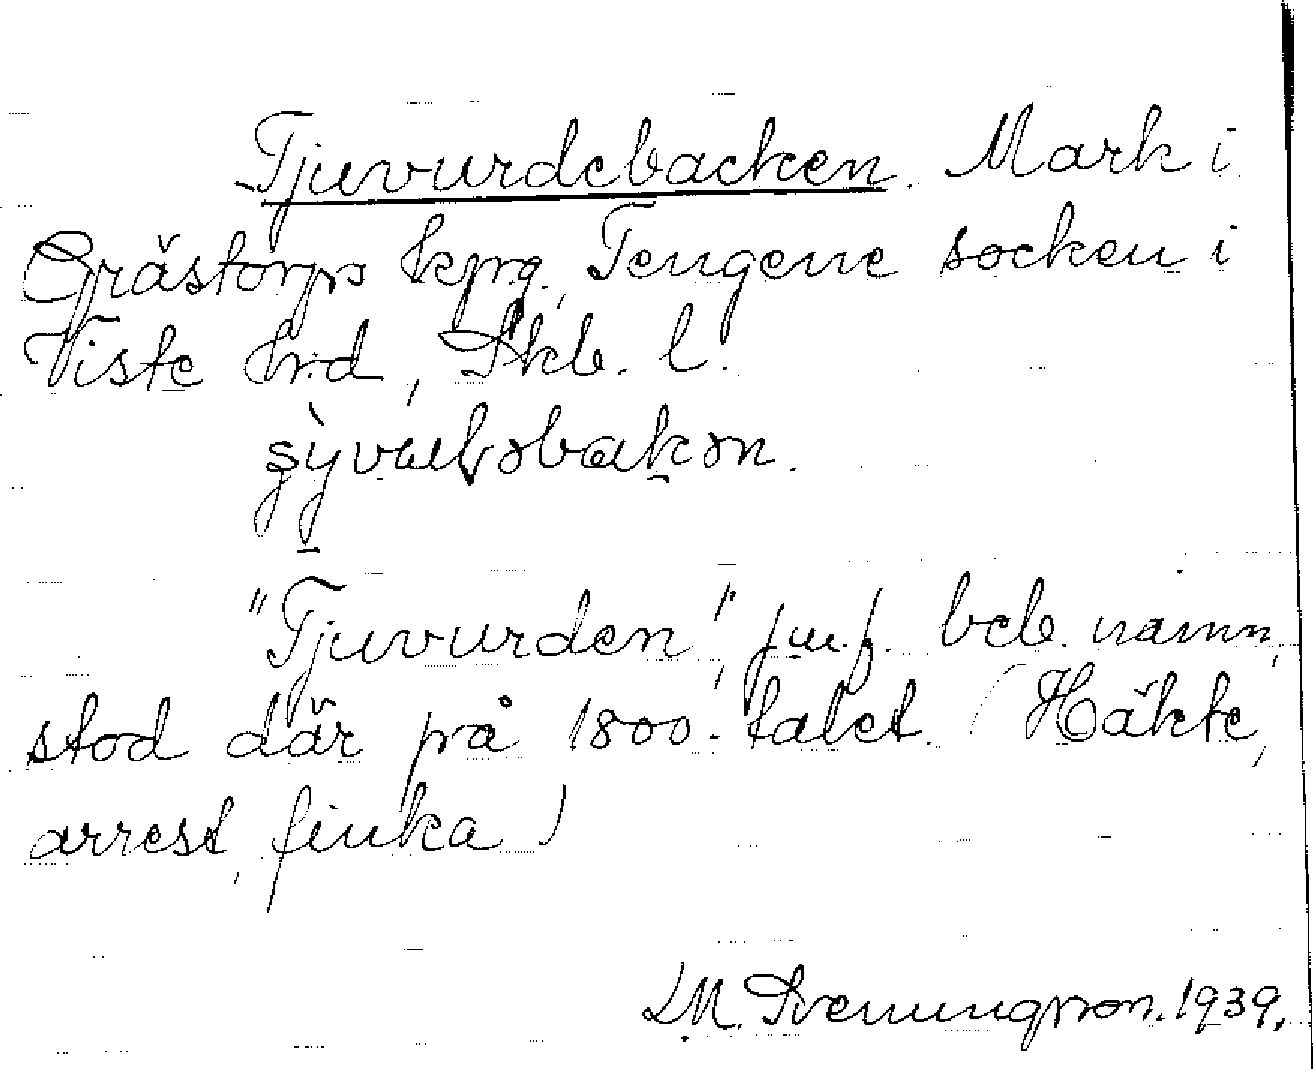 Tjuvurdebacken. Mark i
Grästorps kpg, Tengene socken i
Viste hrd, Skb. l.
"Tjuvurden", beb. namn,
stod där på 1800-talet. (Häkte,
arrest, finka)
LM. Svenungsson. 1939.